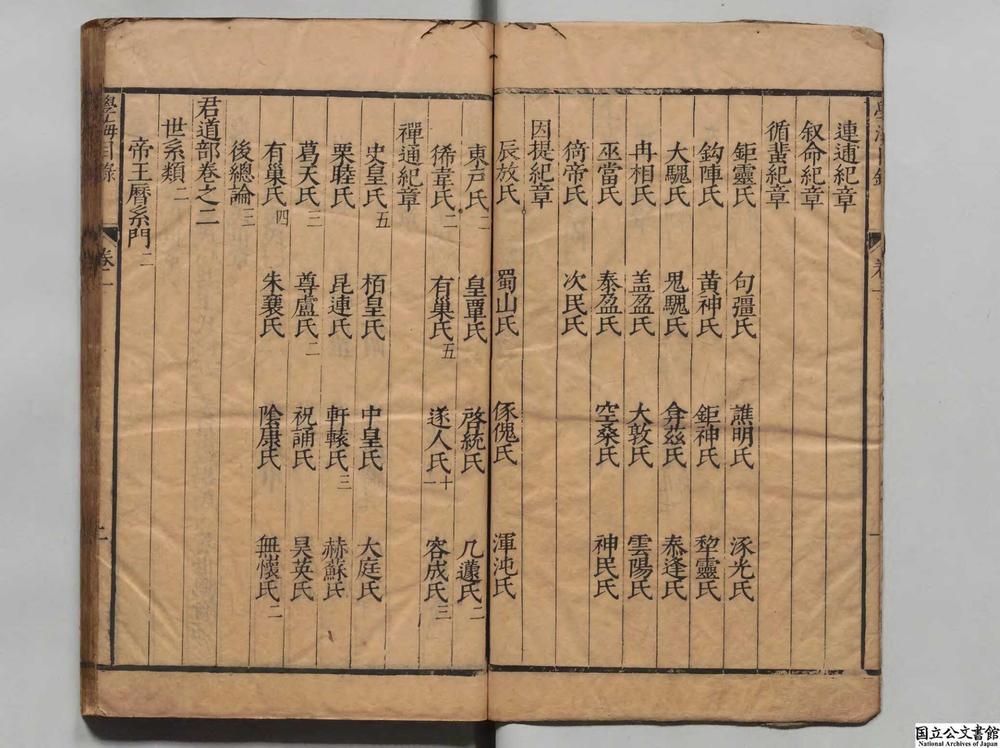 連逋紀章
叙命紀章
循蜚紀章
鉅靈氏 句彊氏 譙明氏 涿光氏
鈎陣氏 黄神氏 鉅神氏 犂靈氏
大騩氏 鬼騩氏 弇兹氏 泰逢氏
冉相氏 盖盈氏 大敦氏 雲陽氏
巫當氏 泰盈氏 空桑氏 神民氏
倚帝氏 次民氏
因提紀章
辰放氏 蜀山氏 豗傀氏 渾沌氏
東戸氏二 皇覃氏 啓統氏 几蘧氏二
狶韋氏二 有巢氏五 遂人氏十一 容成氏三
禪通紀章
史皇氏五 栢皇氏 中皇氏 大庭氏
栗睦氏 昆連氏 軒轅氏三 赫蘇氏
葛天氏三 尊盧氏二 祝誦氏 昊英氏
有巢氏四 朱襄氏 陰康氏 無懷氏二
後總論三
君道部卷之二
世系類二
帝王曆系門二
學海目錄 卷一 二
国立公文書館
National Archives of Japan